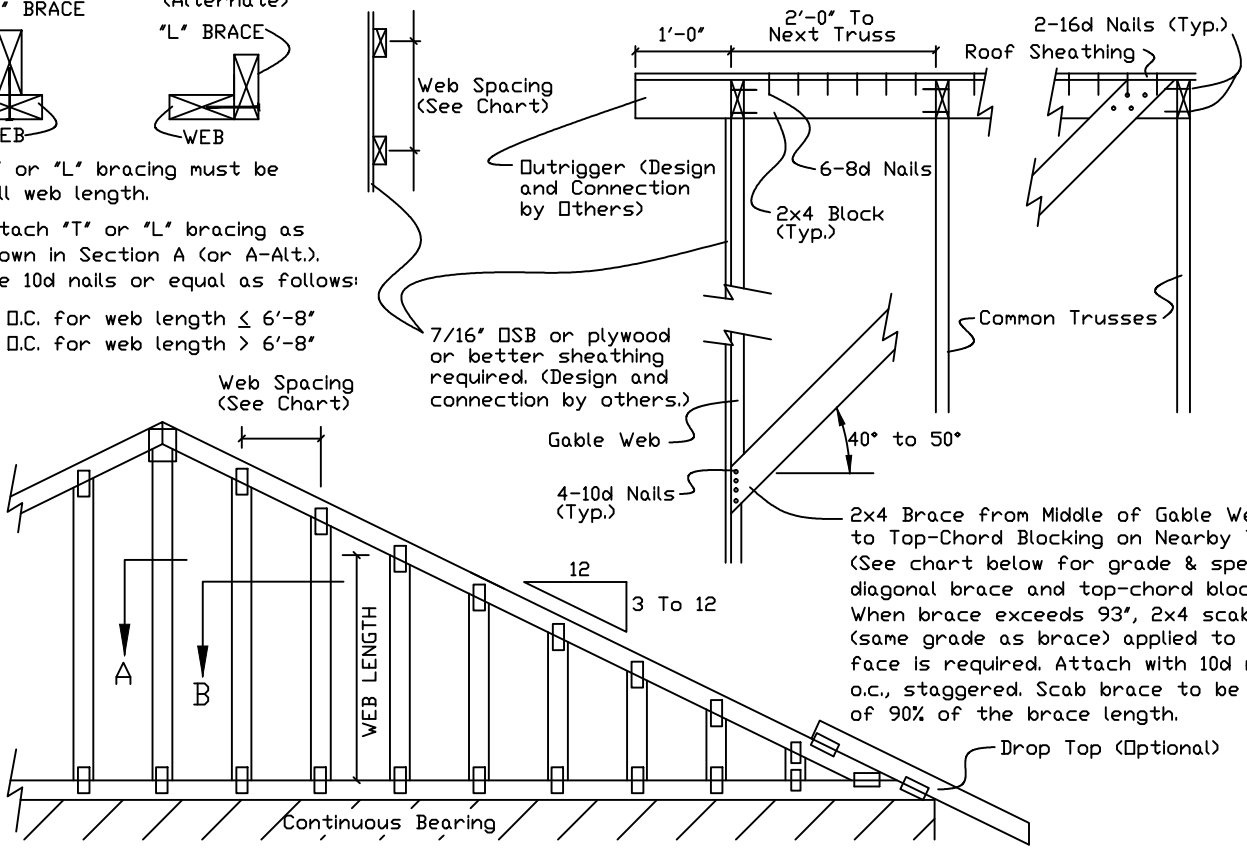 " BRACE
(Alternate)
"L" BRACE
WEB
or "L" bracing must be
web length.
"T" or "L" bracing as
in Section A (or A-Alt.).
10d nails or equal as follows:
O.C. for web length ≤ 6'-8"
O.C. for web length > 6'-8"
Web Spacing
(See Chart)
1'-0"
2'-0" To
Next Truss
2-16d Nails (Typ.)
Roof Sheathing
Outrigger (Design
and Connection
by Others)
6-8d Nails
2x4 Block
(Typ.)
7/16" OSB or plywood
or better sheathing
required. (Design and
connection by others.)
Common Trusses
Gable Web
40° to 50°
4-10d Nails
(Typ.)
2x4 Brace from Middle of Gable
to Top-Chord Blocking on Nearby
(See chart below for grade &
diagonal brace and top-chord
When brace exceeds 93", 2x4
(same grade as brace) applied to
face is required. Attach with 10d
o.c., staggered. Scab brace to be
of 90% of the brace length.
Web Spacing
(See Chart)
12
3 To 12
A
B
WEB LENGTH
Drop Top (Optional)
Continuous Bearing